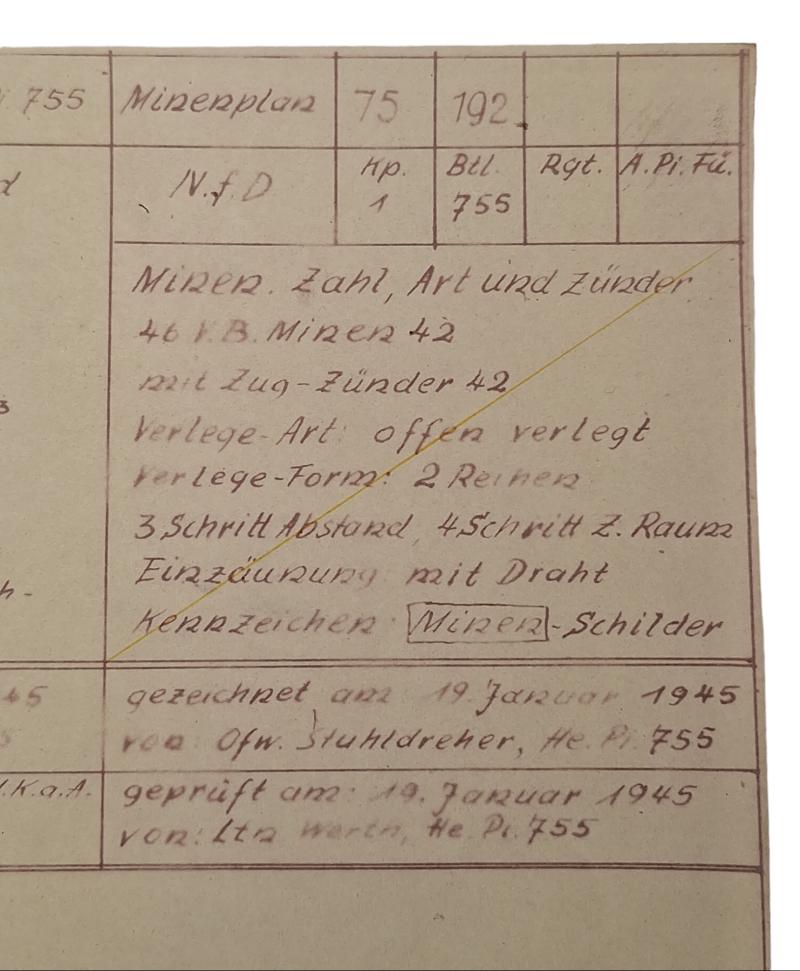 755 Minenplan 75 192
N.f.D Kp. Btl. Rgt. A.Pi.Fü.
1 755
Minen. Zahl, Art und Zünder
46 V.B. Minen 42
mit Zug-Zünder 42
Verlege-Art: offen verlegt
Verlege-Form: 2 Reihen
3 Schritt Abstand, 4 Schritt Z. Raum
Einzäunung mit Draht
h-
Kennzeichen: Minen-Schilder
45 gezeichnet am 19. Januar 1945
von Ofw. Stuhldreher, He. Pi. 755
.K.a.A. geprüft am: 19. Januar 1945
von: Ltn He. Pi. 755